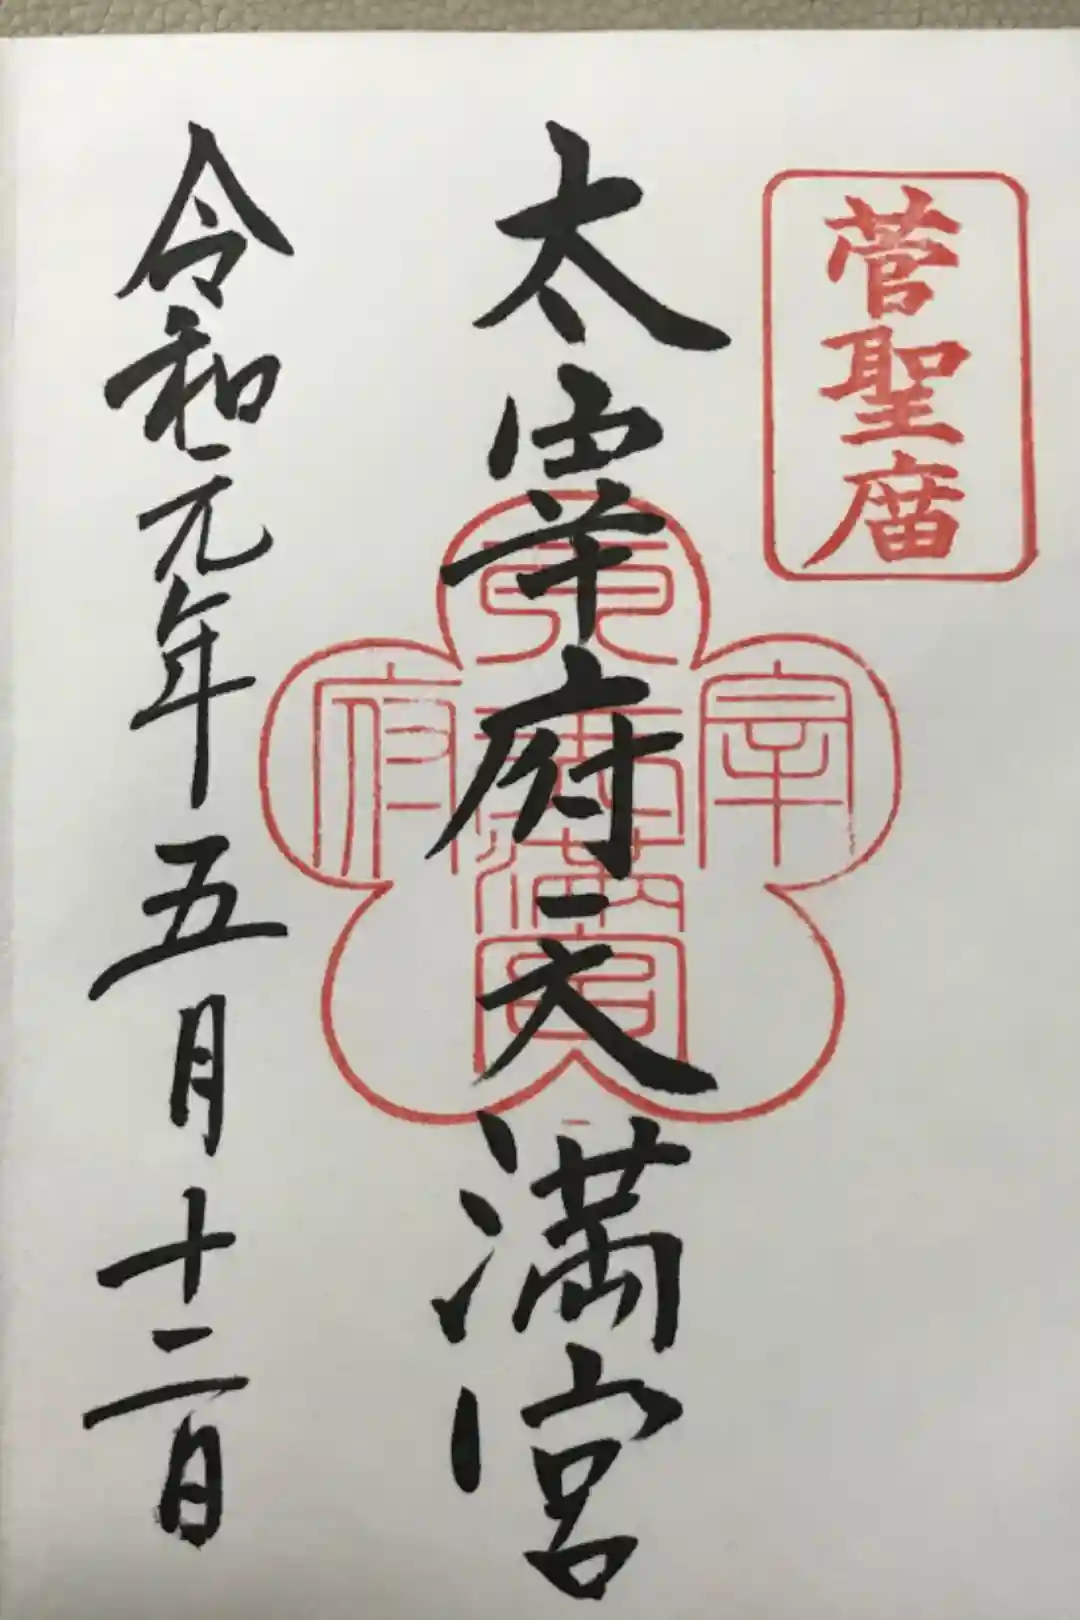 菅聖庿
太宰府天満宮
宰
府
満宮
令和元年五月十二日